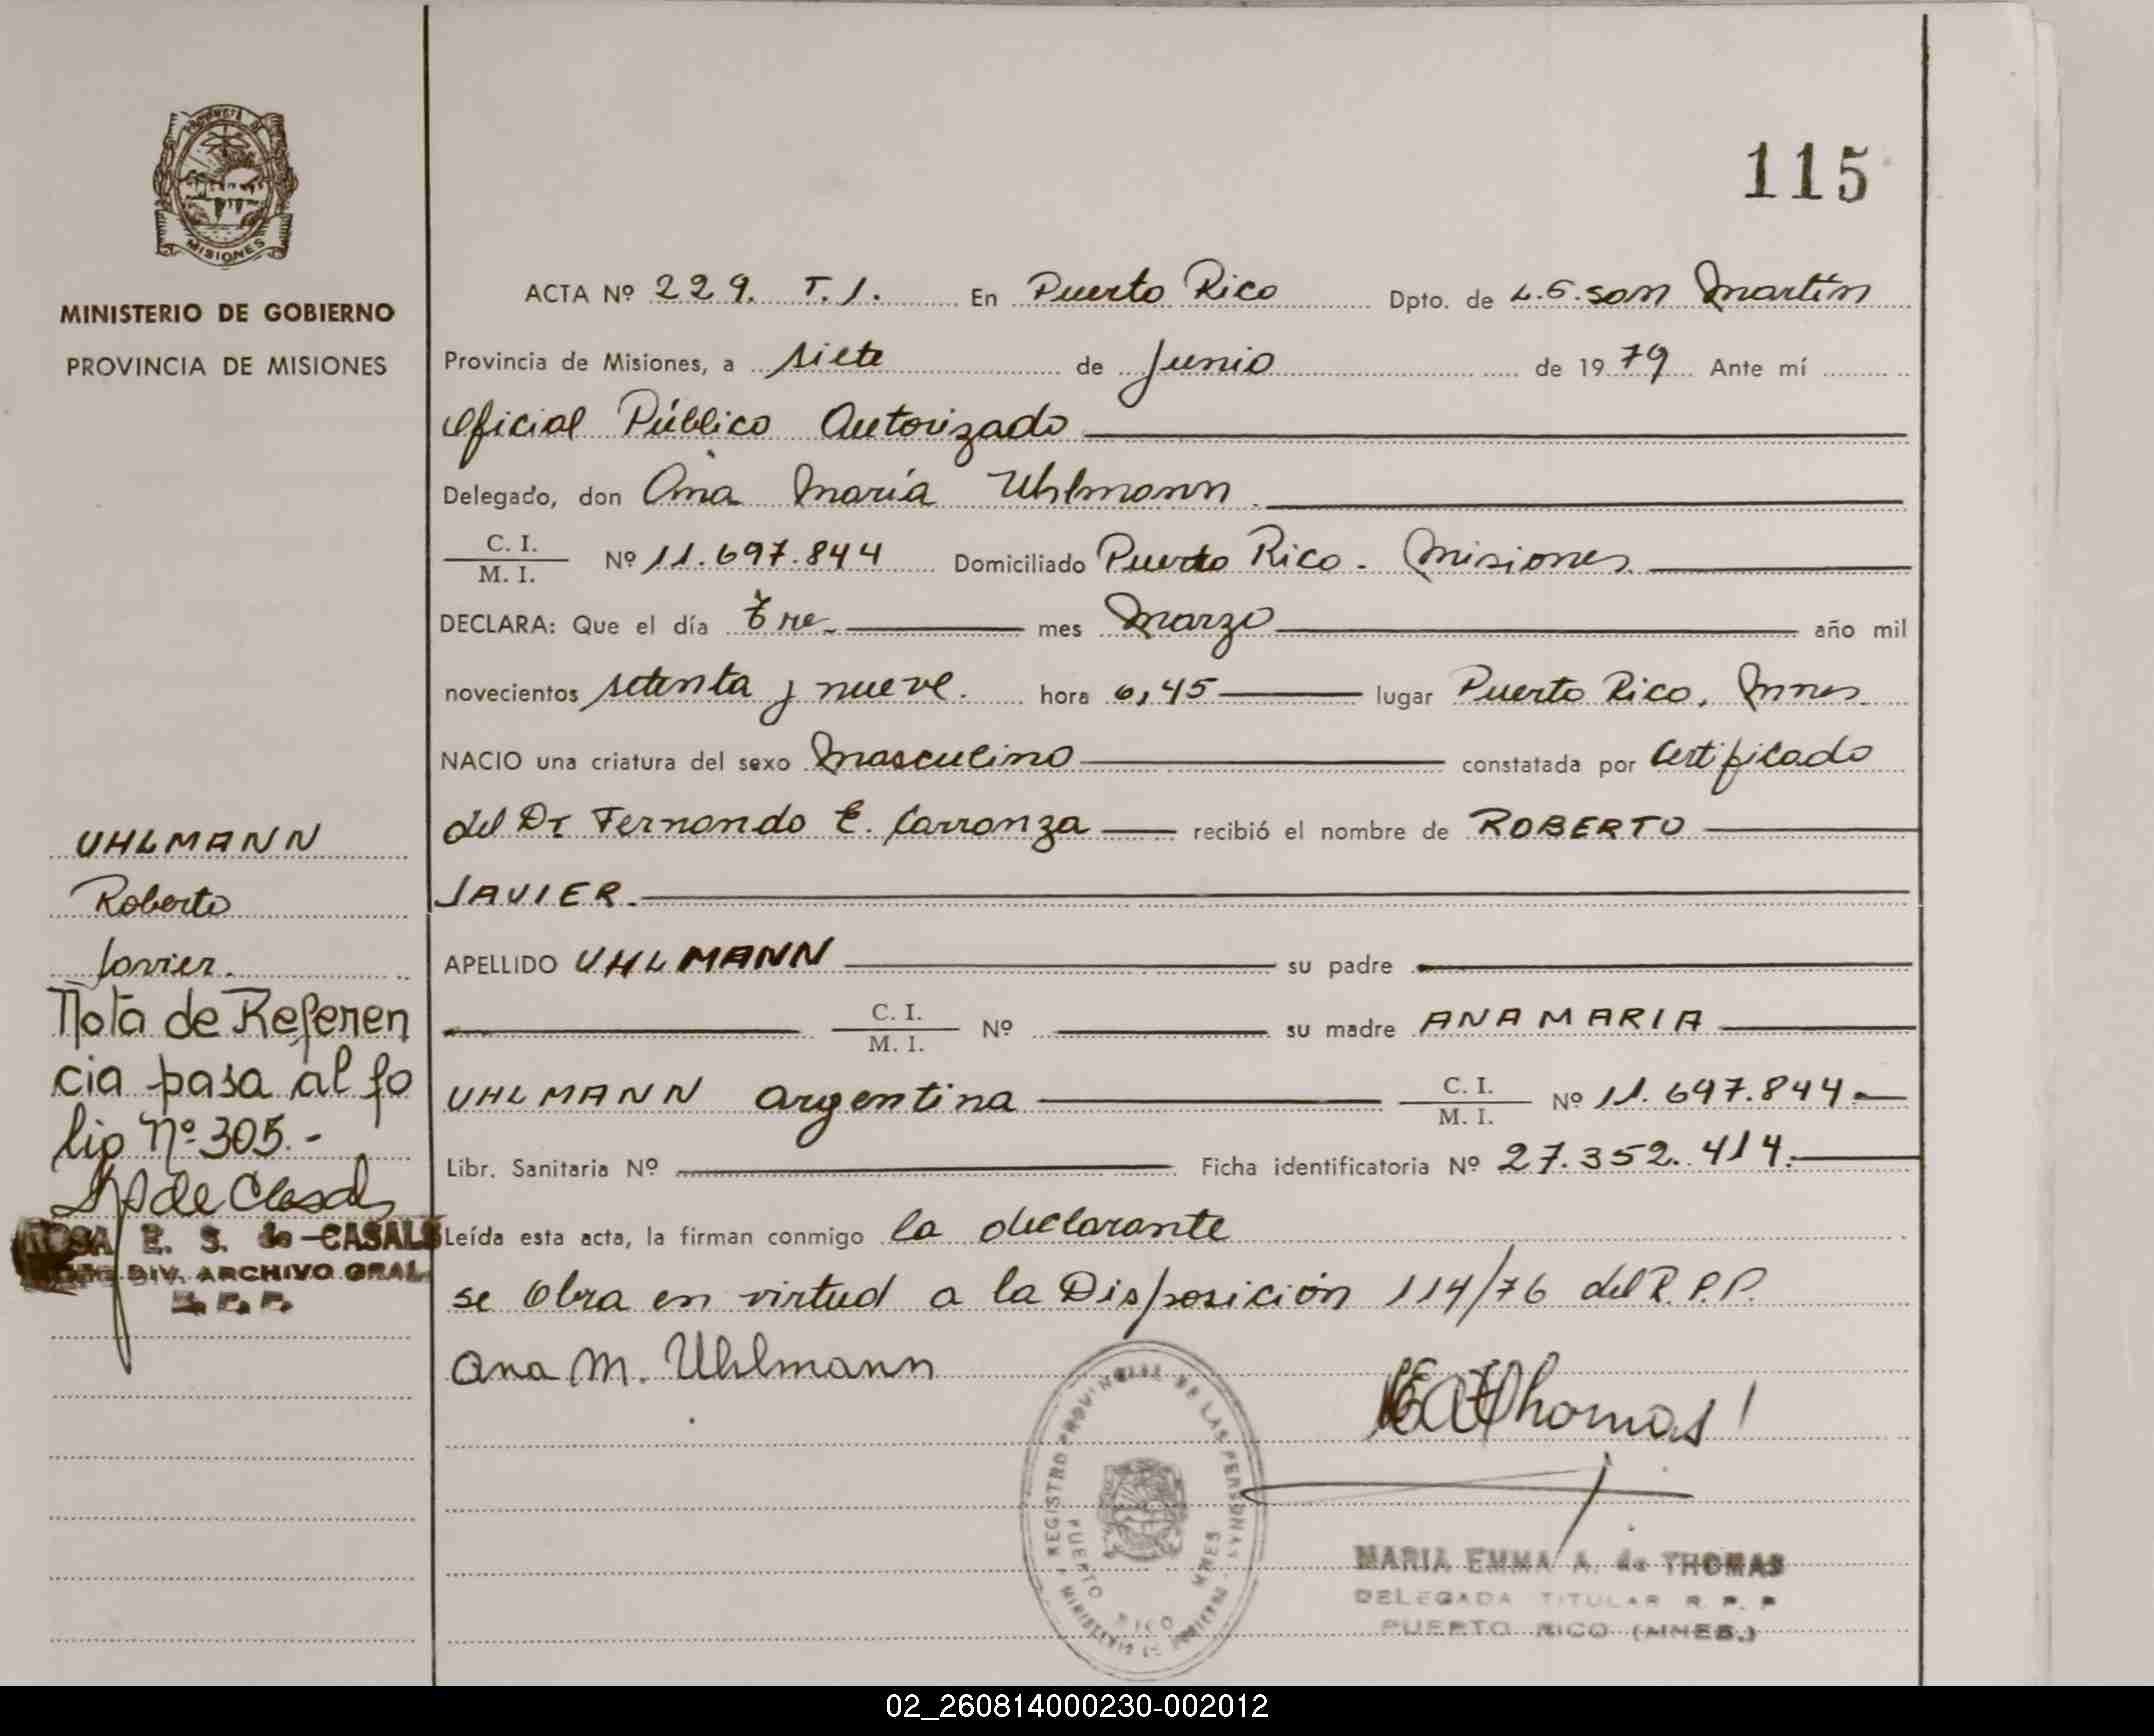 115
PROVINCIA DE
MISIONES
MINISTERIO DE GOBIERNO
PROVINCIA DE MISIONES
ACTA Nº 229. T.1. En Puerto Rico Dpto. de L.G. San Martín
Provincia de Misiones, a siete de Junio de 1979 Ante mí
Oficial Público Autorizado
Delegado, don Ana María Uhlmann
C. I.
M. I. Nº 11.697.844 Domiciliado Puerto Rico - Misiones
DECLARA: Que el día mes Marzo año mil
novecientos setenta y nueve. hora 6,45 lugar Puerto Rico, Mnes.
NACIO una criatura del sexo Masculino constatada por Certificado
del Dr Fernando E. Carronza recibió el nombre de ROBERTO
JAVIER.
APELLIDO UHLMANN su padre
C. I.
M. I. Nº su madre ANA MARIA
UHLMANN Argentina C. I.
M. I. Nº 11.697.844
Libr. Sanitaria Nº Ficha identificatoria Nº 27.352.414.
Leída esta acta, la firman conmigo la declarante
se Obra en virtud a la Disposición 114/76 del R.P.P.
Ana M. Uhlmann
Thomas
REGISTRO PROVINCIAL DE LAS PERSONAS
PUERTO RICO MNES
MARIA EMMA A. de THOMAS
DELEGADA TITULAR R. P. P
PUERTO RICO (MNES.)
UHLMANN
Roberto
Javier.
Nota de Referen
cia pasa al fo
lio Nº 305.-
de Casals
ROSA E. S. de CASALS
DIV. ARCHIVO GRAL.
02_260814000230-002012